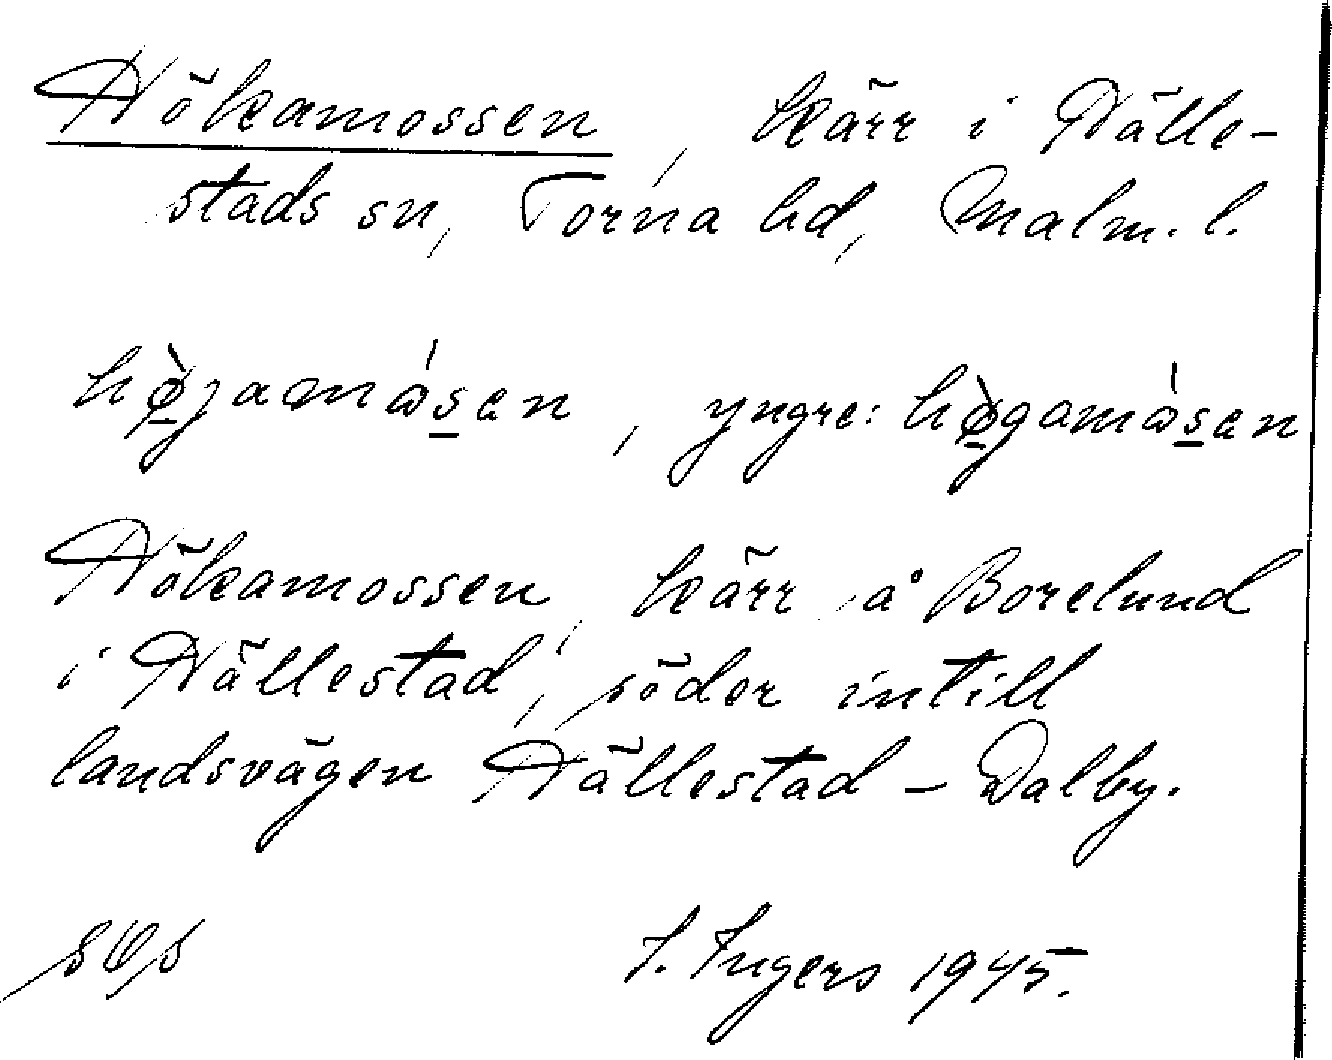 Hökamossen, kärr i Hälle-
stads sn, Torna hd, Malm. l.
hø̀jamósen, yngre: hø̀gamósen
Hökamossen, kärr å Borelund
i Hällestad, söder intill
landsvägen Hällestad – Dalby.
I. Ingers 1945.